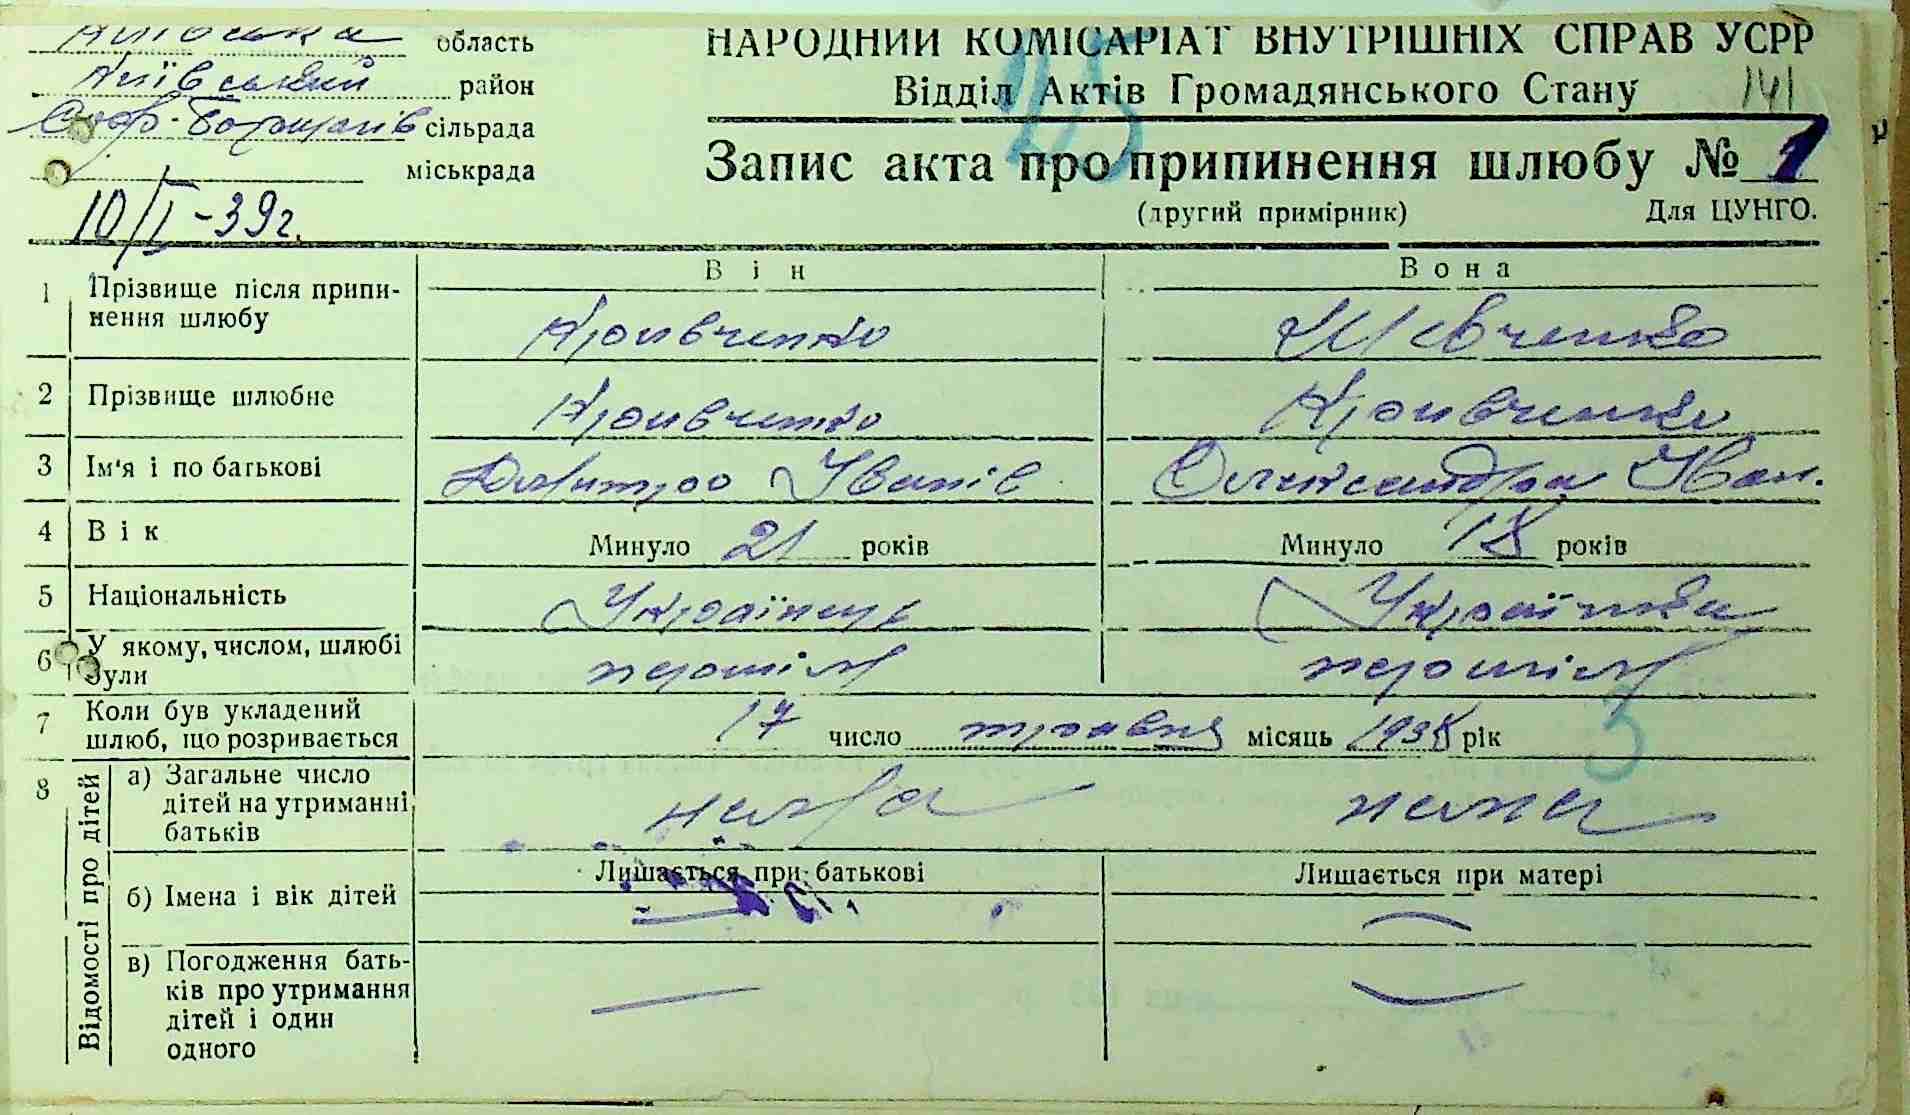 Київська область
Київський район
Соф-Борщагів сільрада
міськрада
10/I-39г.
НАРОДНИЙ КОМІСАРІАТ ВНУТРІШНІХ СПРАВ УСРР
Відділ Актів Громадянського Стану
141
25
Запис акта про припинення шлюбу № 1
(другий примірник) Для ЦУНГО.
Він Вона
1 Прізвище після припи-
нення шлюбу
Кривченко Шевченко
2 Прізвище шлюбне Кривченко Кривченко
3 Ім'я і по батькові Дмитро Іванів Олександра Іван.
4 Вік Минуло 21 років Минуло 18 років
5 Національність Українець Українка
6 У якому, числом, шлюбі
були
першім першім
7 Коли був укладений
шлюб, що розривається
17 число травня місяць 1938 рік
3
8 Відомості про дітей
а) Загальне число
дітей на утриманні
батьків
нема нема
Лишається при батькові Лишається при матері
б) Імена і вік дітей
в) Погодження бать-
ків про утримання
дітей і один
одного